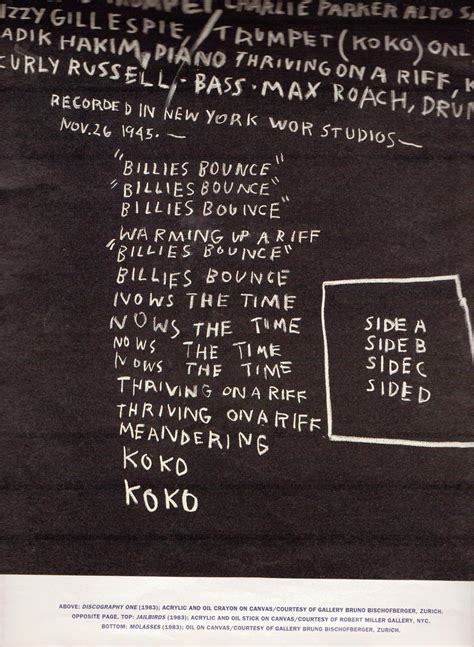 TRUMPET CHARLIE PARKER ALTO S
IZZY GILLESPIE / TRUMPET (KOKO) ONE
ADIK HAKIM, PIANO THRIVING ON A RIFF, K
CURLY RUSSELL - BASS · MAX ROACH, DRUM
RECORDED IN NEW YORK WOR STUDIOS—
NOV. 26 1945.—
"BILLIES BOUNCE"
"BILLIES BOUNCE"
BILLIES BOUNCE"
WARMING UP A RIFF
"BILLIES BOUNCE"
BILLIES BOUNCE
NOWS THE TIME
NOWS THE TIME
NOWS THE TIME
NOWS THE TIME
THRIVING ON A RIFF
THRIVING ON A RIFF
MEANDERING
KOKO
KOKO
SIDE A
SIDE B
SIDE C
SIDE D
ABOVE: DISCOGRAPHY ONE (1983); ACRYLIC AND OIL CRAYON ON CANVAS/COURTESY OF GALLERY BRUNO BISCHOFBERGER, ZURICH.
OPPOSITE PAGE, TOP: JAILBIRDS (1983); ACRYLIC AND OIL STICK ON CANVAS/COURTESY OF ROBERT MILLER GALLERY, NYC.
BOTTOM: MOLASSES (1983); OIL ON CANVAS/COURTESY OF GALLERY BRUNO BISCHOFBERGER, ZURICH.